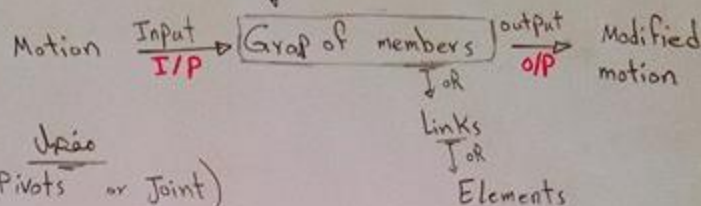 Motion Input I/P Grop of members output O/P Modified motion
↓ OR
Links
↓ OR
Elements
Pivots or Joint)